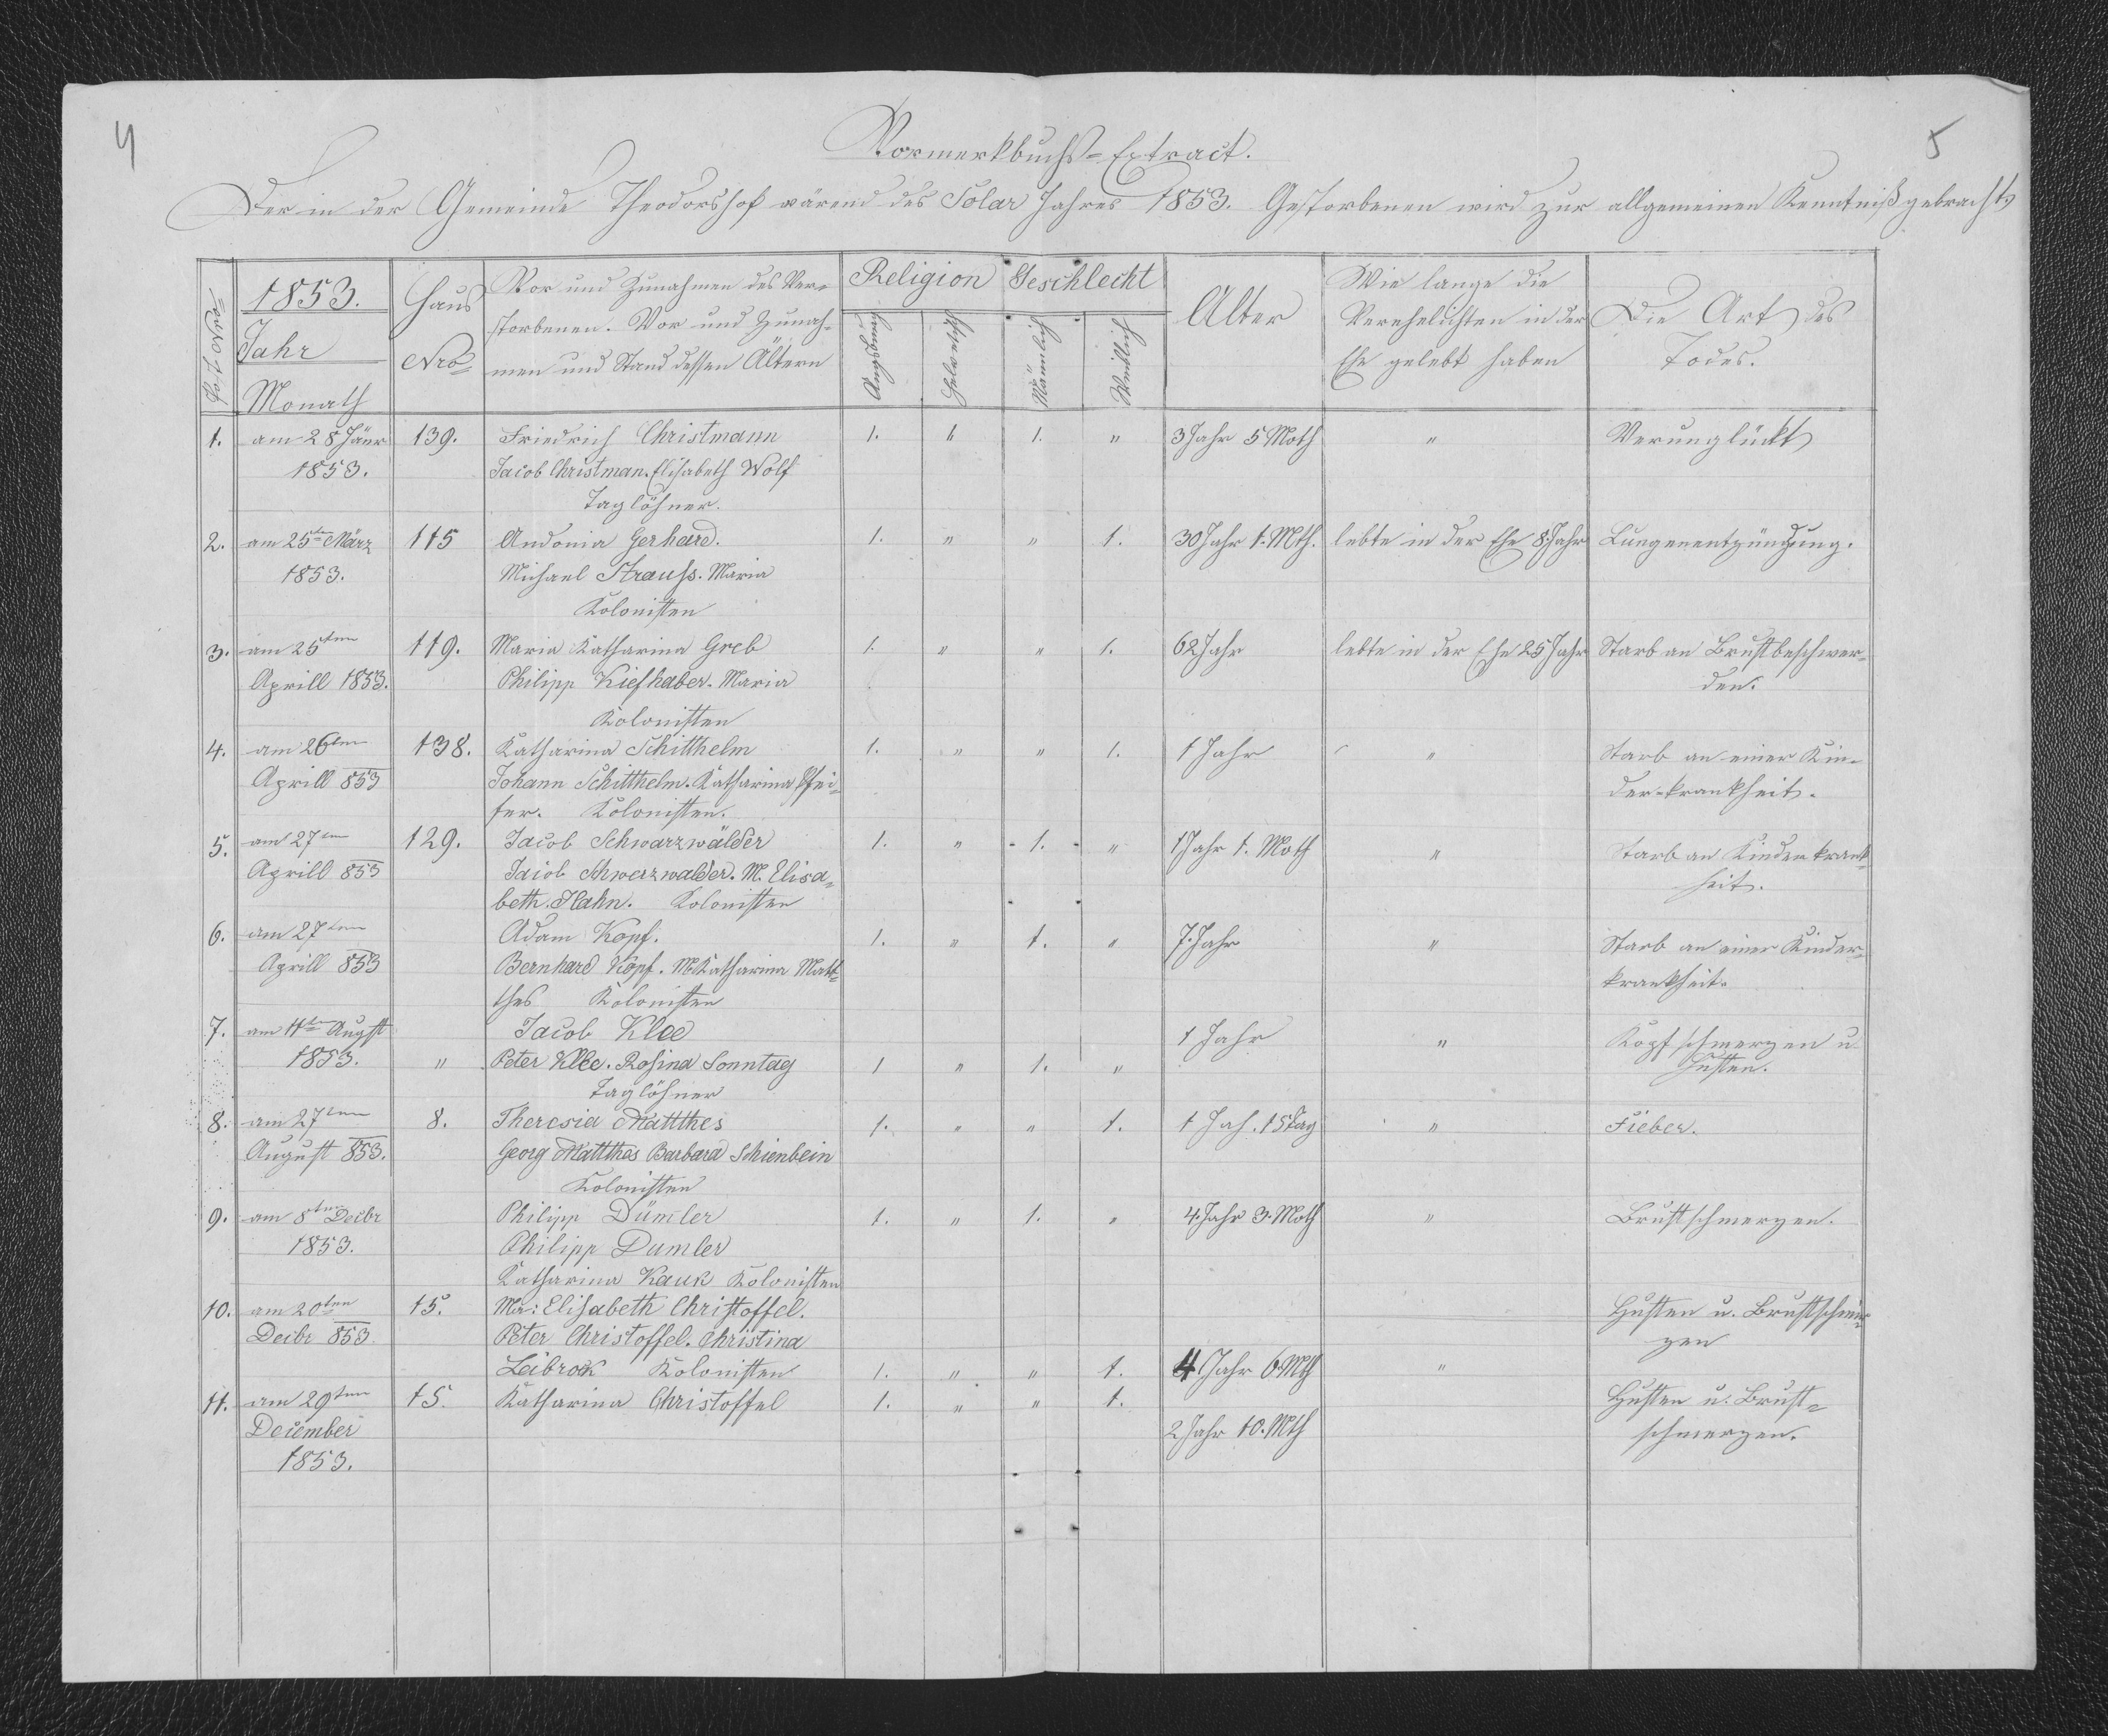 4
5
Vormerkbuchs=Extract.
Der in der Gemeinde Theodorshof wärend des Solar Jahres 1853. Gestorbenen wird zur allgemeinen Kenntniß gebracht
1853.
Jahr
Monath
Haus
Nro
Vor und Zunahmen des Ver=
storbenen. Vor und Zunah=
men und Stand dessen Ältern
Religion
Augsburg
Helvetisch
Geschlecht
Männlich
Weiblich
Alter
Wie lange die
Verehelichten in der
Ehe gelebt haben
Die Art des
Todes.
1. am 28 Jänr 139. Friedrich Christmann 1. " 1. " 3 Jahr 5 Moth " Verunglückt
1853. Jacob Christman. Elisabeth Wolf
Taglöhner.
2. am 25ten März 115 Andonia Gerhard. 1. " " 1. 30 Jahr 1. Mth. lebte in der Ehe 8 Jahr Lungenentzündung.
1853. Michael Strauß. Maria
Kolonisten
3. am 25ten 119. Maria Katharina Greb 1. " " 1. 62 Jahr lebte in der Ehe 25 Jahr Starb an Brustbeschwer=
Aprill 1853. Philipp Kiefhaber. Maria den.
Kolonisten
4. am 26ten 138. Katharina Schitthelm 1. " " 1. 1 Jahr " Starb an einer Kin=
Aprill 853 Johann Schitthelm. Katharina Pfei= der=krankheit.
fer. Kolonisten.
5. am 27ten 129. Jacob Schwarzwälder 1. " 1. " 1 Jahr 1. Moth " Starb an Kinder krank=
Aprill 853 Jacob Schwerzwalder. M. Elisa= heit.
beth. Hahn. Kolonisten
6. am 27ten Adam Kopf. 1. " 1. " 7. Jahr " Starb an einer Kinder=
Aprill 853 Bernhard Kopf. M Katharina Matt= krankheit.
thes Kolonisten
7. am 11ten Augst Jacob Klee 1 Jahr " Kopfschmerzen u
1853. " Peter Klee. Rosina Sonntag 1 " 1. " Husten.
Taglöhner
8. am 27ten 8. Theresia Mattthes 1. " " 1. 1 Jah. 15 Tag " Fieber.
August 853. Georg Mattthes Barbara Schienbein
Kolonisten
9. am 8ten Decbr Philipp Dümler 1. " 1. " 4. Jahr 3. Moth " Brustschmerzen.
1853. Philipp Dumler
Katharina Kauk Kolonisten
10. am 20ten 15. Ma: Elisabeth Christoffel. Husten u. Brustschmer=
Decbr 853 Peter Christoffel. Christina zen
Leibrok Kolonisten 1. " " 1. 4 Jahr 6 Mth "
11. am 29ten 15. Katharina Christoffel 1. " " 1. Husten u. Brust=
December 2 Jahr 10. Mth schmerzen.
1853.